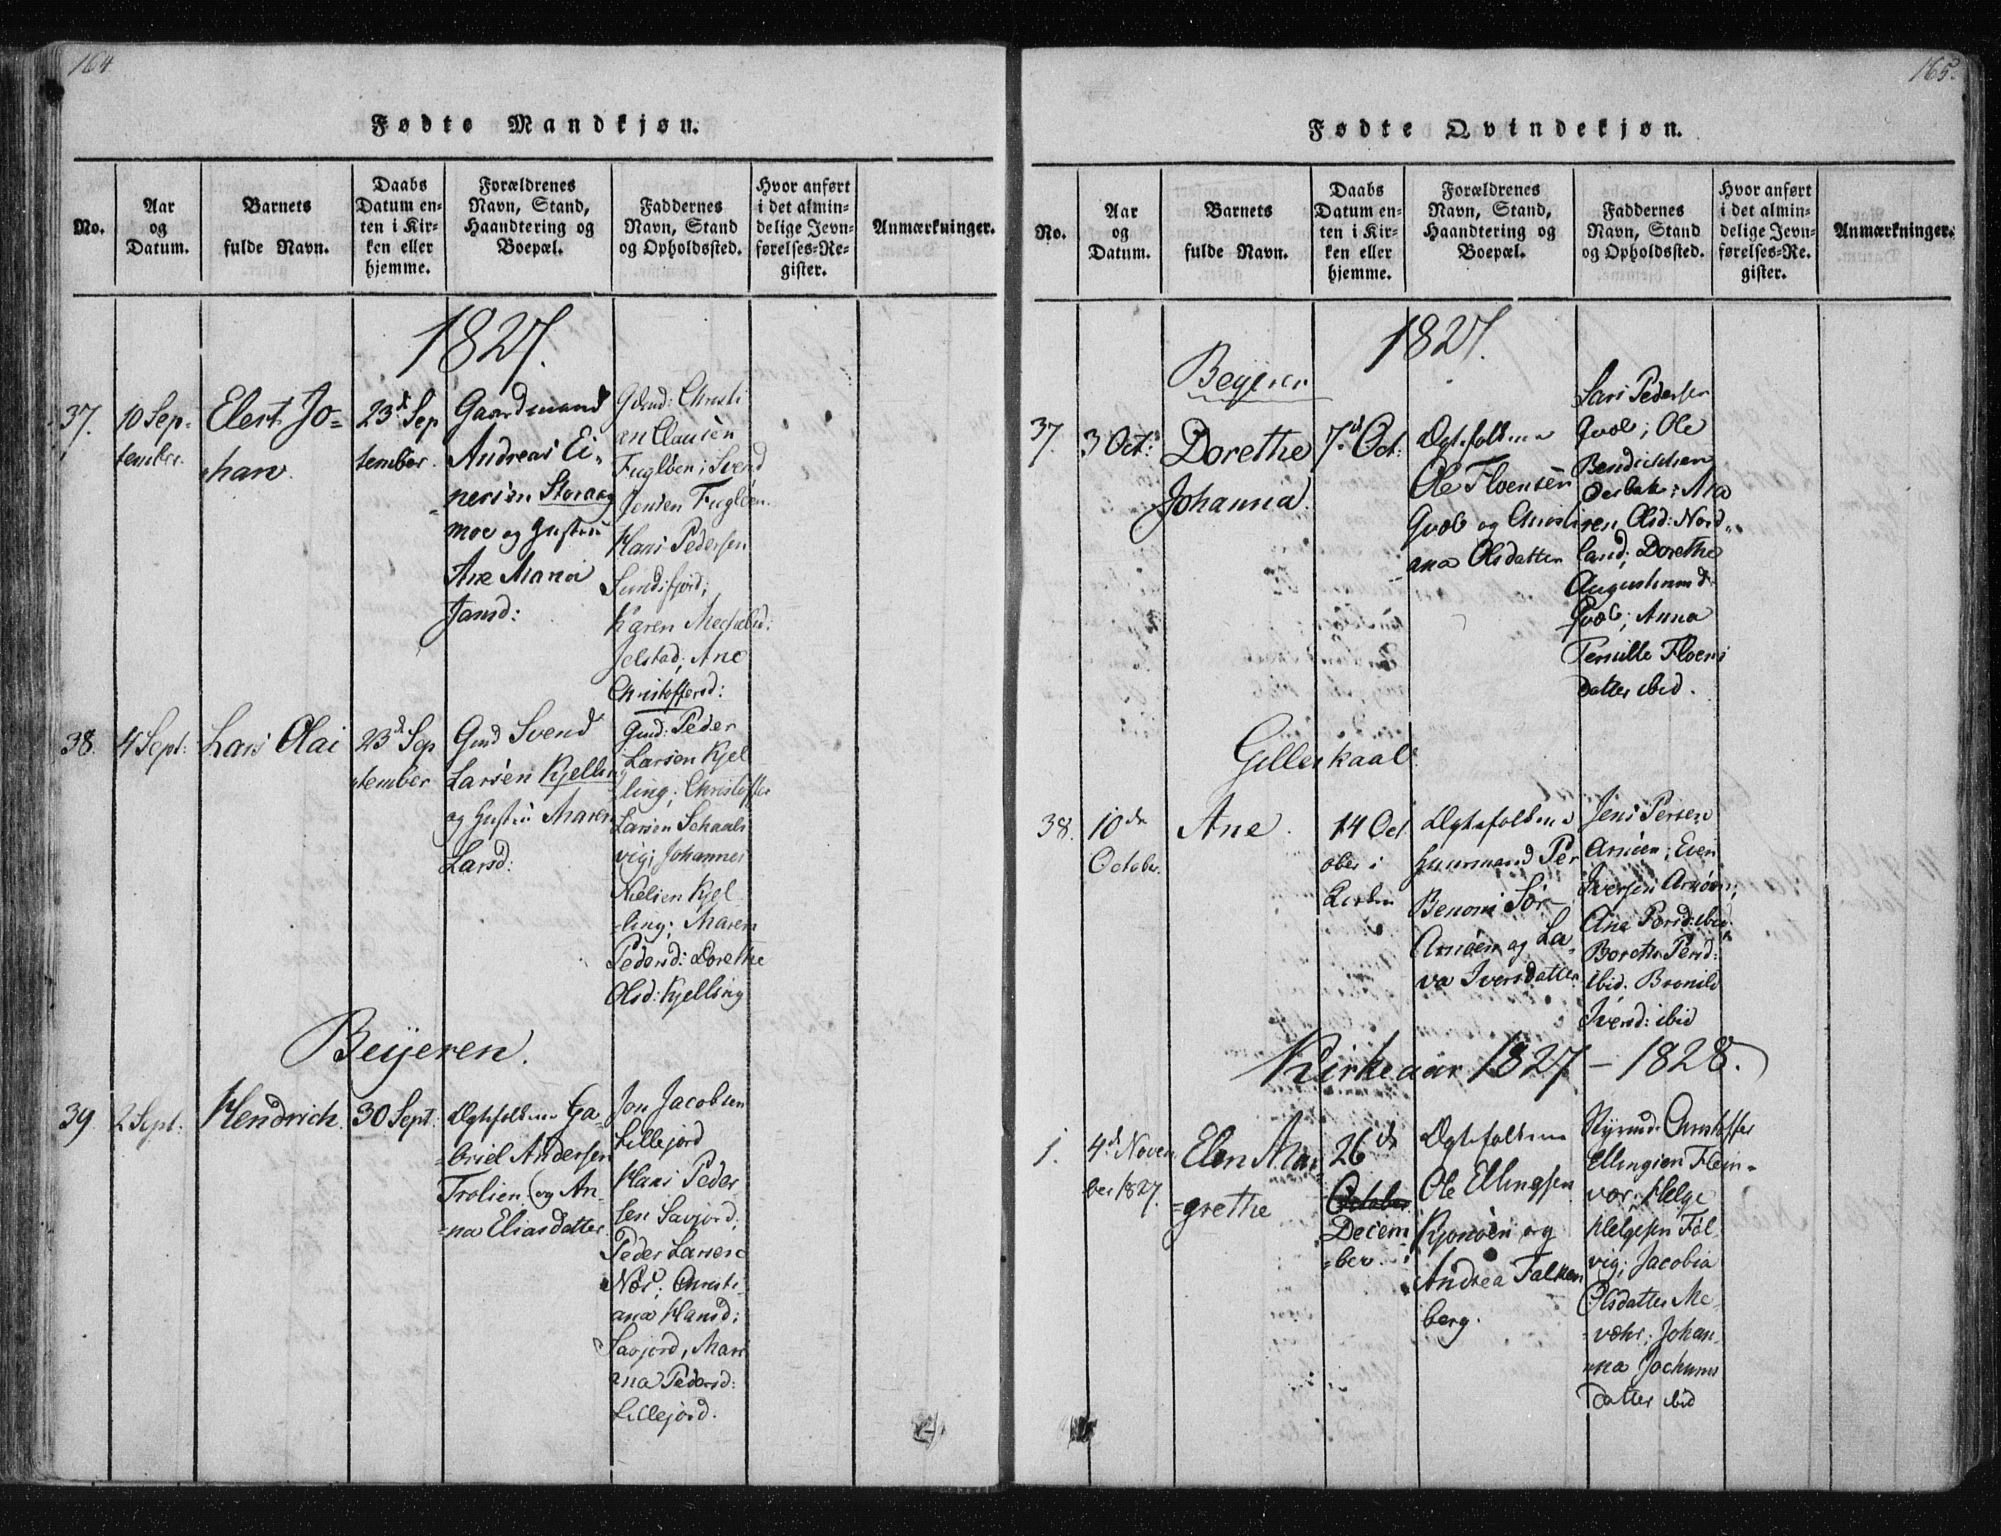 164
Fødte Mandkjøn.
No.
Aar
og
Datum.
Barnets
fulde Navn.
Daabs
Datum en-
ten i Kir-
ken eller
hjemme.
Forældrenes
Navn, Stand,
Haandtering og
Boepæl.
Faddernes
Navn, Stand
og Opholdssted.
Hvor anført
i det almin-
delige Jevn-
førelses-Re-
gister.
Anmærkninger.
1827.
37.
10 Sep-
tember.
Elert Jo-
han.
23d Sep
tember.
Gaardmand
Andreas Ei-
nersøn
moe og Hustru
Ane Maria
Jansd:
Gmd: Christi
an Clausen
Fugløen; Svend
Jensen Fugløen.
Hans Pedersen
Sundsfjord;
Karen
Jelstad; Ane
Christoffersd:
38.
4 Sept:
Lars Olai
23d Sep
tember
Gmd Svend
Larsen Kjelling
og Hustru Maren
Larsd:
Gmd: Peder
Larsen Kjel
ling; Christoffer
Larsen Schaals
vig; Johannes
Nielsen Kjel
-ling; Maren
Pedersd: Dorethe
Olsd: Kjelling
Beijeren.
39.
2 Sept:
Hendrich.
30 Sept:
Ægtefolkene Ga-
-briel Andersen
Trolien og An-
-na Eliasdatter.
Jon Jacobsen
Lillejord
Hans Peder
sen Savjord;
Peder Larsen
Næs; Christi-
ana Hansd:
Savjord, Mari
ana Pedersd:
Lillejord.
165.
Fødte Qvindekjøn.
No.
Aar
og
Datum.
Barnets
fulde Navn.
Daabs
Datum en-
ten i Kir-
ken eller
hjemme.
Forældrenes
Navn, Stand,
Haandtering og
Boepæl.
Faddernes
Navn, Stand
og Opholdssted.
Hvor anført
i det almin-
delige Jevn-
førelses-Re-
gister.
Anmærkninger.
1827.
Beyeren
37.
3 Oct:
Dorethe
Johanna.
7d Oct:
Ægtefolkene
Ole Floensen
Qvæl og Christi
ana Olsdatter
Lars Pedersen
Qvæl; Ole
Bendichsen
Osebak; Ma
ren Olsd: Nord-
land; Dorethe
Augustinusd:
Qvæl; Anna
Pernille Floens
datter ibid.
Gilleskaal.
38.
10de
October.
Ane.
14 Oct
ober i
Kirken
Ægtefolkene
Huusmand Per
Benoni Sør
Arnøen og La-
va Iversdatter
Jens Persen
Arnøen; Even
Iversen Arnøen;
Ane Persd: ibid.
Berethe Persd:
ibid. Bronild
Iversd: ibid
Kirkeaar 1827 - 1828.
1.
4d Novem
ber 1827.
Elen Mar-
=grethe
26de
October
Decem
-ber.
Ægtefolkene
Ole Ellingsen
Kjonøen og
Andrea Falken
berg.
Styrmd. Christoffer
Ellingsen Flein-
vær; Helge
Helgesen Føl-
vig; Jacobia
Olsdatter Me-
-væhr; Johan-
-na Jochums
datter ibid